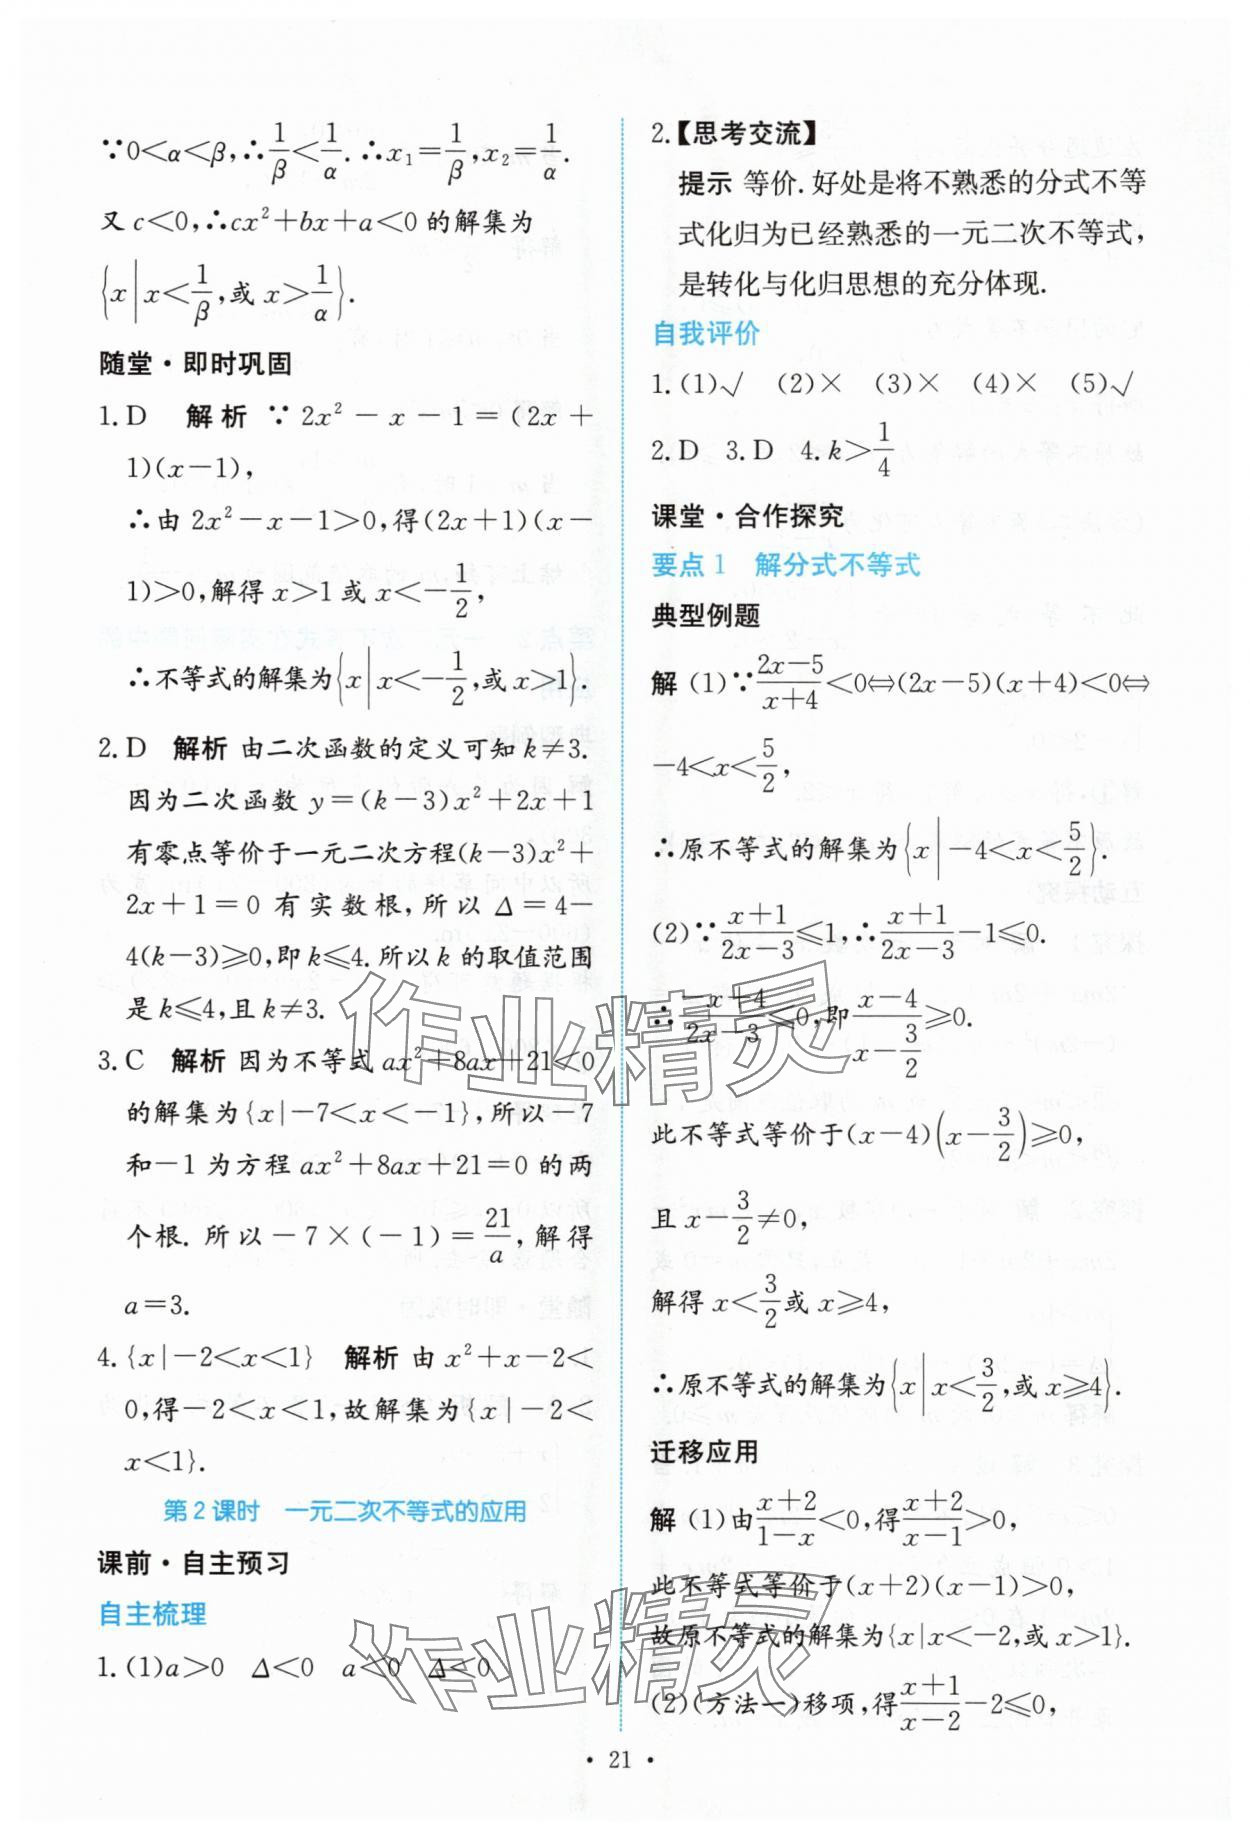 ∵0<α<β,∴1/β<1/α.∴x₁=1/β,x₂=1/α.
又 c<0,∴cx²+bx+a<0 的解集为
{x|x<1/β,或 x>1/α}.
随堂·即时巩固
1.D 解析 ∵ 2x²-x-1=(2x+
1)(x-1),
∴由 2x²-x-1>0,得(2x+1)(x-
1)>0,解得 x>1 或 x<-1/2,
∴不等式的解集为{x|x<-1/2,或 x>1}.
2.D 解析 由二次函数的定义可知 k≠3.
因为二次函数 y=(k-3)x²+2x+1
有零点等价于一元二次方程(k-3)x²+
2x+1=0 有实数根,所以 Δ=4-
4(k-3)≥0,即 k≤4.所以 k 的取值范围
是 k≤4,且 k≠3.
3.C 解析 因为不等式 ax²+8ax+21<0
的解集为{x|-7<x<-1},所以-7
和-1 为方程 ax²+8ax+21=0 的两
个根. 所以-7×(-1)=21/a,解得
a=3.
4.{x|-2<x<1} 解析 由 x²+x-2<
0,得-2<x<1,故解集为{x|-2<
x<1}.
第2课时 一元二次不等式的应用
课前·自主预习
自主梳理
1.(1)a>0 Δ<0 a<0 Δ<0
2.【思考交流】
提示 等价.好处是将不熟悉的分式不等
式化归为已经熟悉的一元二次不等式,
是转化与化归思想的充分体现.
自我评价
1.(1)√ (2)× (3)× (4)× (5)√
2.D 3.D 4.k>1/4
课堂·合作探究
要点1 解分式不等式
典型例题
解 (1)∵(2x-5)/(x+4)<0⇔(2x-5)(x+4)<0⇔
-4<x<5/2,
∴原不等式的解集为{x|-4<x<5/2}.
(2)∵(x+1)/(2x-3)≤1,∴(x+1)/(2x-3)-1≤0.
∴(-x+4)/(2x-3)≤0,即(x-4)/(x-3/2)≥0.
此不等式等价于(x-4)(x-3/2)≥0,
且 x-3/2≠0,
解得 x<3/2或 x≥4,
∴原不等式的解集为{x|x<3/2,或 x≥4}.
迁移应用
解 (1)由(x+2)/(1-x)<0,得(x+2)/(x-1)>0,
此不等式等价于(x+2)(x-1)>0,
故原不等式的解集为{x|x<-2,或 x>1}.
(2)(方法一)移项,得(x+1)/(x-2)-2≤0,
·21·
作业精灵
作业精灵